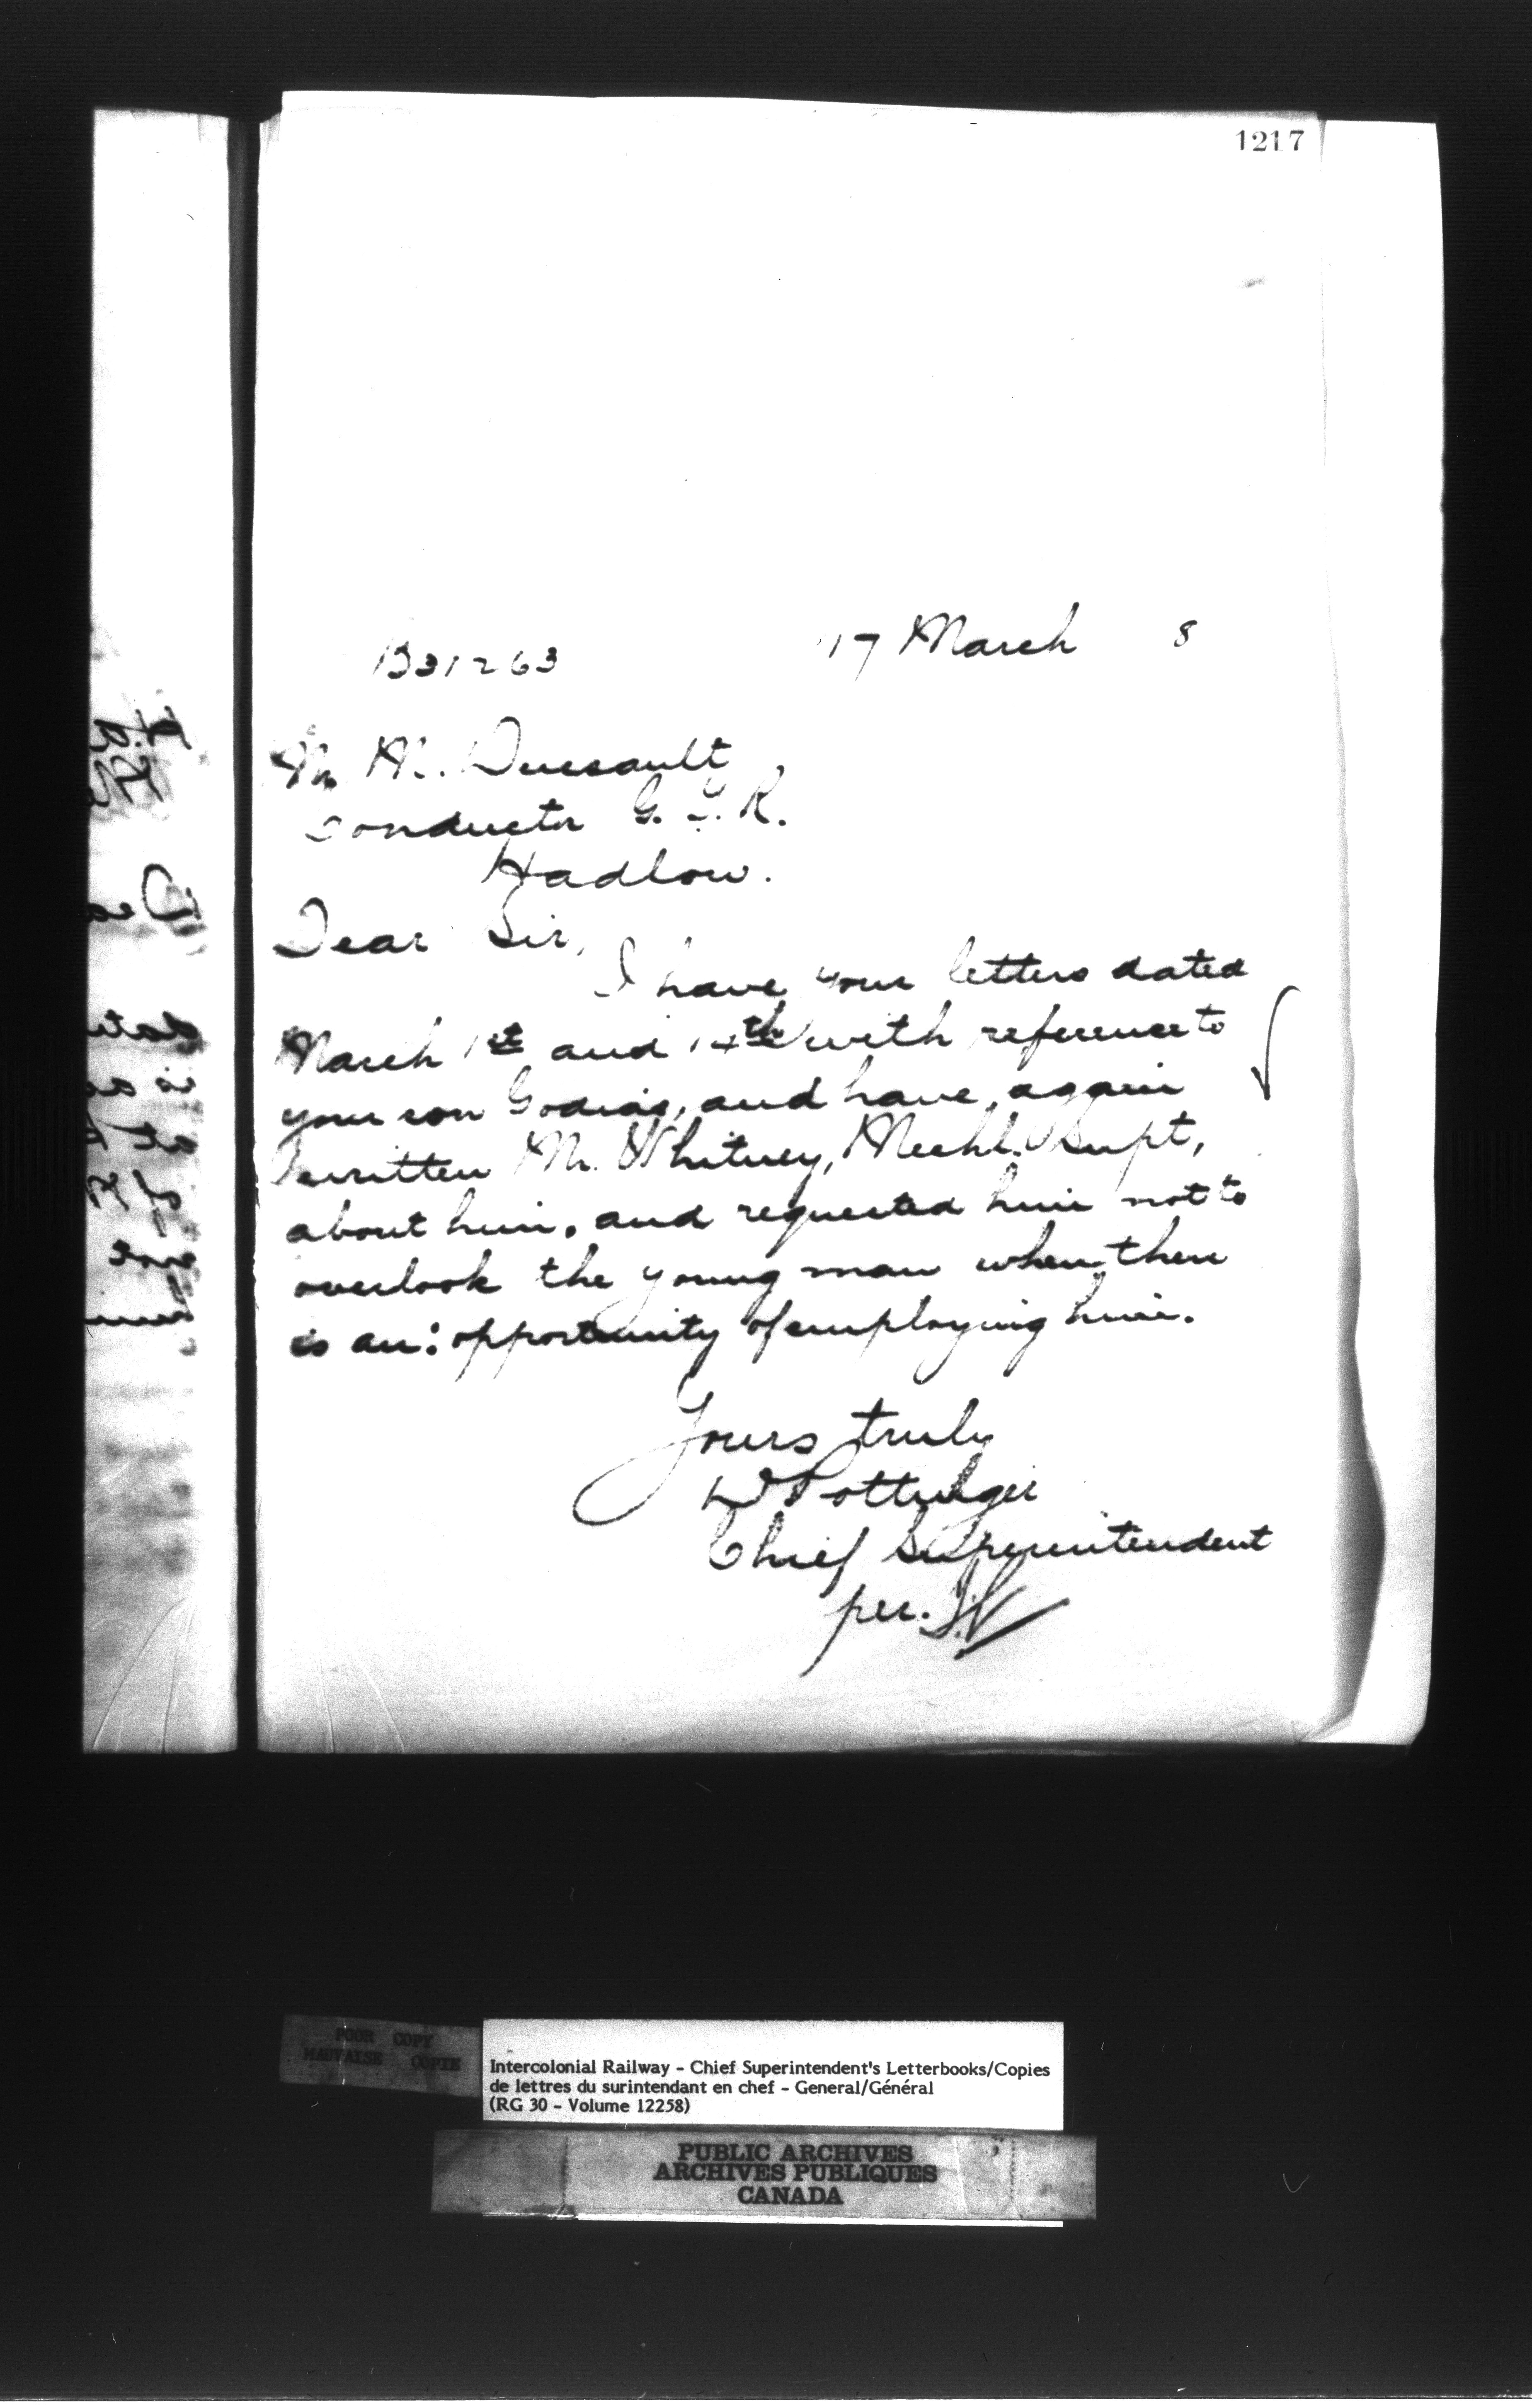 1217
B31263 17 March 8
Mr M. Duesault
Conductor G.T.R.
Hadlow.
Dear Sir,
I have your letters dated
March 1st and 14th with reference to
your son Godias, and have again
written Mr. Whitney, Mechl. Supt,
about him, and requested him not to
overlook the young man when there
is an opportunity of employing him.
Yours truly
D Pottinger
Chief Superintendent
per.
POOR COPY
MAUVAISE COPIE
Intercolonial Railway - Chief Superintendent's Letterbooks/Copies
de lettres du surintendant en chef - General/Général
(RG 30 - Volume 12258)
PUBLIC ARCHIVES
ARCHIVES PUBLIQUES
CANADA